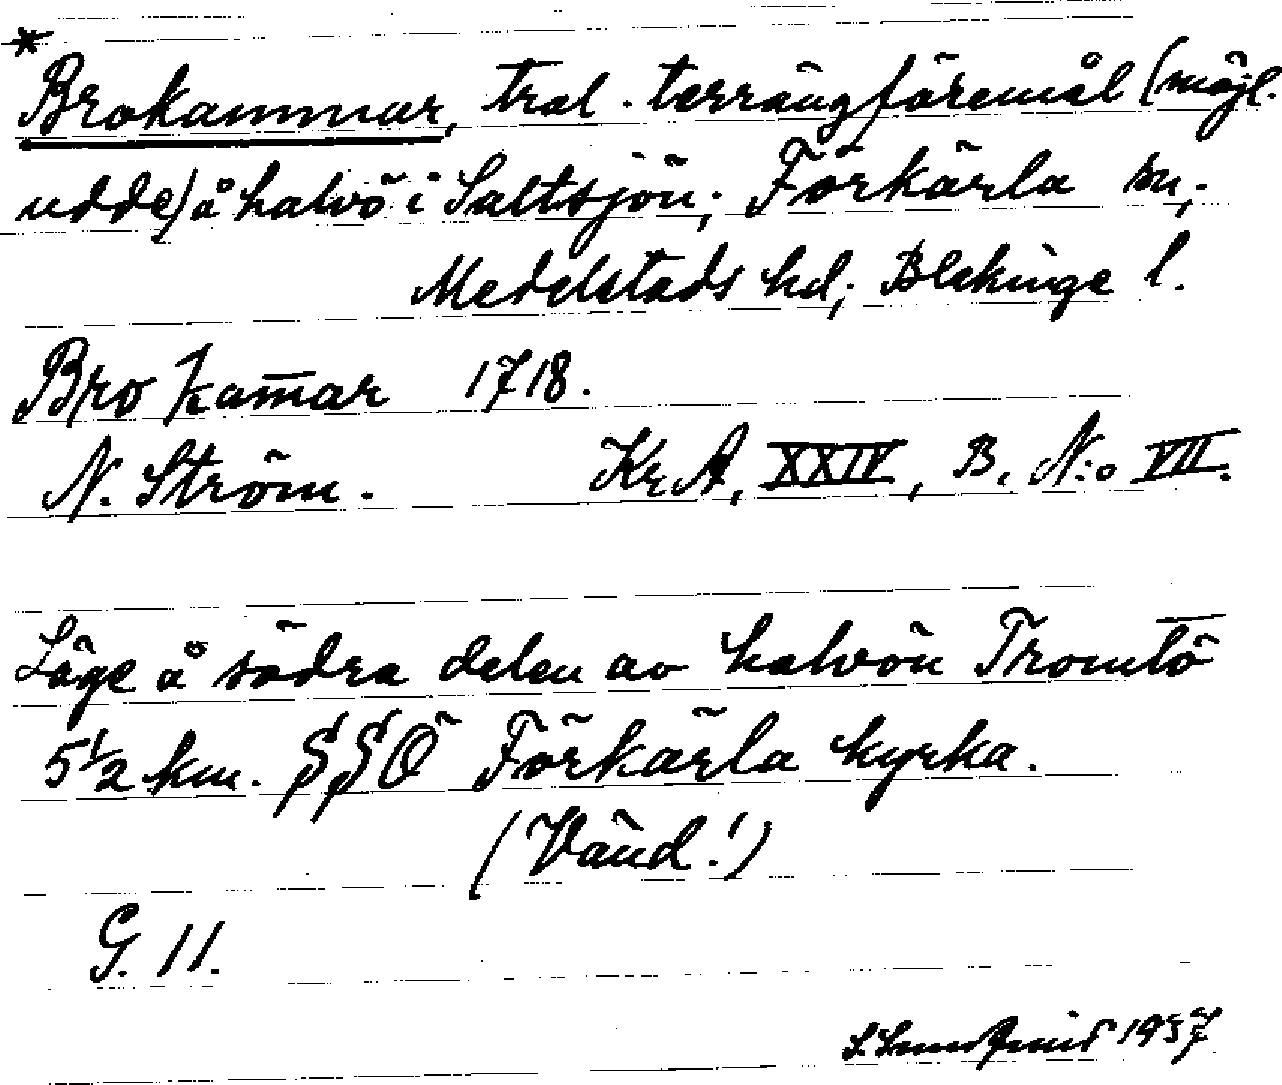 *
Brokammar, trol. terrängföremål (möjl.
udde) å halvö i Saltsjön; Förkärla sn;
Medelstads hd; Blekinge l.
Bro kam̄ar 1718.
N. Ström. KrA, XXIV, B. N:o VII.
Läge å södra delen av halvön Tromtö
5½ km. SSÖ Förkärla kyrka.
(Vänd!)
G. 11.
1937